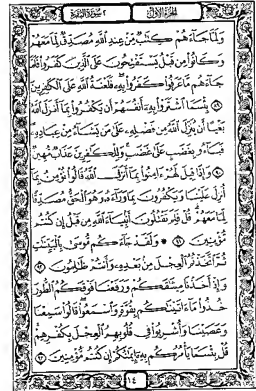 الجزء الأول
سورة البقرة ٢
ولما جاءهم كتاب من عند الله مصدق لما معهم
وكانوا من قبل يستفتحون على الذين كفروا فلما
جاءهم ما عرفوا كفروا به فلعنة الله على الكافرين
٨٩ بئسما اشتروا به أنفسهم أن يكفروا بما أنزل الله
بغيا أن ينزل الله من فضله على من يشاء من عباده
فباءو بغضب على غضب وللكافرين عذاب مهين
٩٠ وإذا قيل لهم ءامنوا بما أنزل الله قالوا نؤمن بما
أنزل علينا ويكفرون بما وراءه وهو الحق مصدقا
لما معهم قل فلم تقتلون أنبياء الله من قبل إن كنتم
مؤمنين ٩١ ولقد جاءكم موسى بالبينات
ثم اتخذتم العجل من بعده وأنتم ظالمون ٩٢
وإذ أخذنا ميثاقكم ورفعنا فوقكم الطور
خذوا ما ءاتيناكم بقوة واسمعوا قالوا سمعنا
وعصينا وأشربوا في قلوبهم العجل بكفرهم
قل بئسما يأمركم به إيمانكم إن كنتم مؤمنين ٩٣
١٤